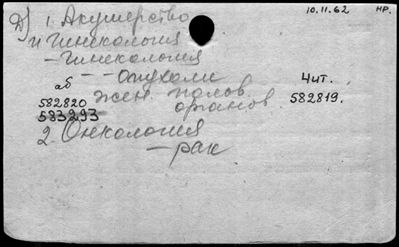 10.11.62 нр.
Д) 1. Акушерство
и гинекология
- Гинекология
- - опухоли Чит.
аб
582820 жен. полов. 582819.
583293 органов.
2. Онкология
- рак